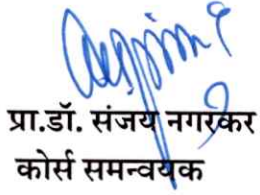 प्रा.डॉ. संजय नगरकर
कोर्स समन्वयक